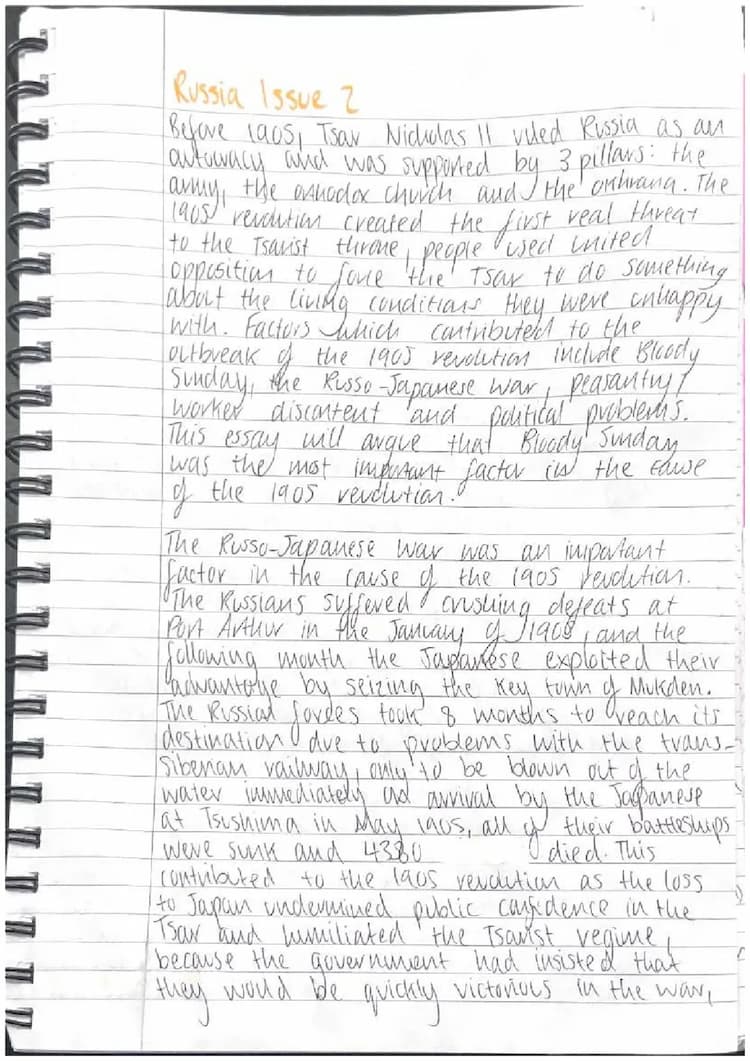 Russia Issue 2
Before 1905, Tsar Nicholas II ruled Russia as an
autocracy and was supported by 3 pillars: the
army, the orthodox church and the okhrana. The
1905 revolution created the first real threat
to the Tsarist throne, people used united
opposition to force the Tsar to do something
about the living conditions they were unhappy
with. Factors which contributed to the
outbreak of the 1905 revolution include Bloody
Sunday, the Russo-Japanese war, peasantry/
worker discontent and political problems.
This essay will argue that Bloody Sunday
was the most important factor in the cause
of the 1905 revolution.
The Russo-Japanese war was an important
factor in the cause of the 1905 revolution.
The Russians suffered crushing defeats at
Port Arthur in the January of 1905, and the
following month the Japanese exploited their
advantage by seizing the key town of Mukden.
The Russian forces took 8 months to reach its
destination due to problems with the trans-
Siberian railway, only to be blown out of the
water immediately on arrival by the Japanese
at Tsushima in May 1905, all of their battleships
were sunk and 4380 died. This
contributed to the 1905 revolution as the loss
to Japan undermined public confidence in the
Tsar and humiliated the Tsarist regime,
because the government had insisted that
they would be quickly victorious in the war,